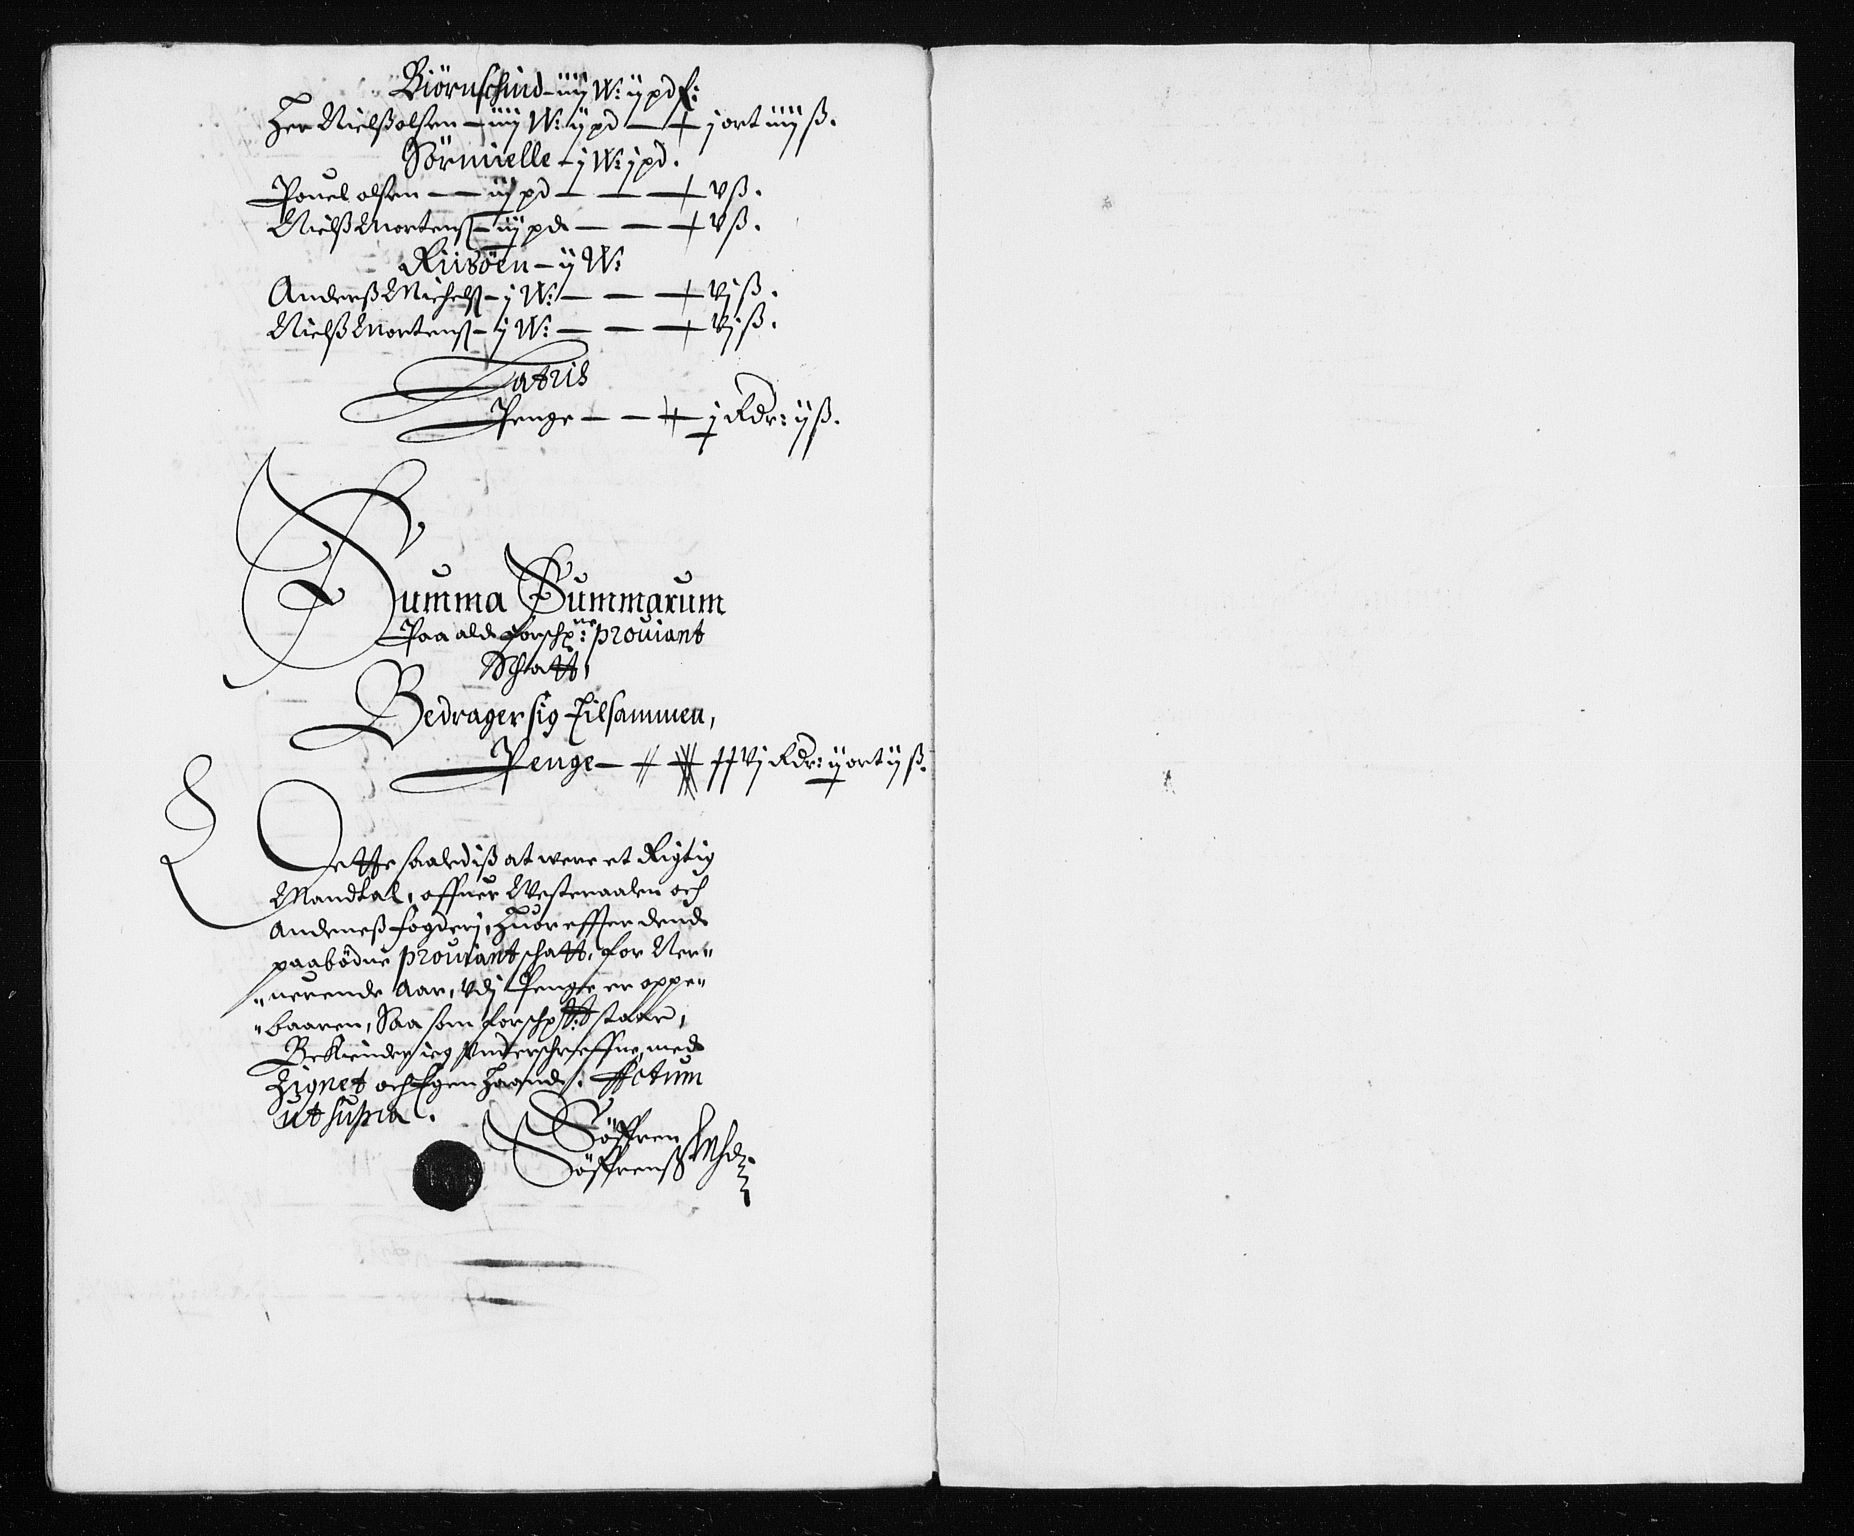 Biörnschind – iiij W: ij pd f:
Her Nielß olsen – iiij W: ij pd – – j ort iiij ß.
Sörmielle – j W: j pd.
Pouel olsen – – ij pd – – – v ß.
Nielß Mortenß – ij pd – – – v ß.
Riisöen – ij W:
Anderß Michelß – j W: – – – vj ß.
Nielß Mortenß – j W: – – – vj ß.
Lateris
Penge – – – j Rdr: ij ß.
Summa Summarum
Paa alde forschp:ne prouiant
Schatt,
Bedrager sig Tilsammen,
Penge – vj Rdr: ij ort ij ß.
Dette saalediß at were et Rigtig
Mandtal, offuer Westeraalen och
Andeneß fogderj, Huor effter dend
paabödne prouiant schatt, for Ner-
-uerende Aar, vdj Penge er oppe-
-baaren, Saa som forschp: staar,
Bekiender ieg Vnderschreffne, med
Zignet och Egen Haand. Actum
ut supra.
Söffren
Söffrenß Mhd